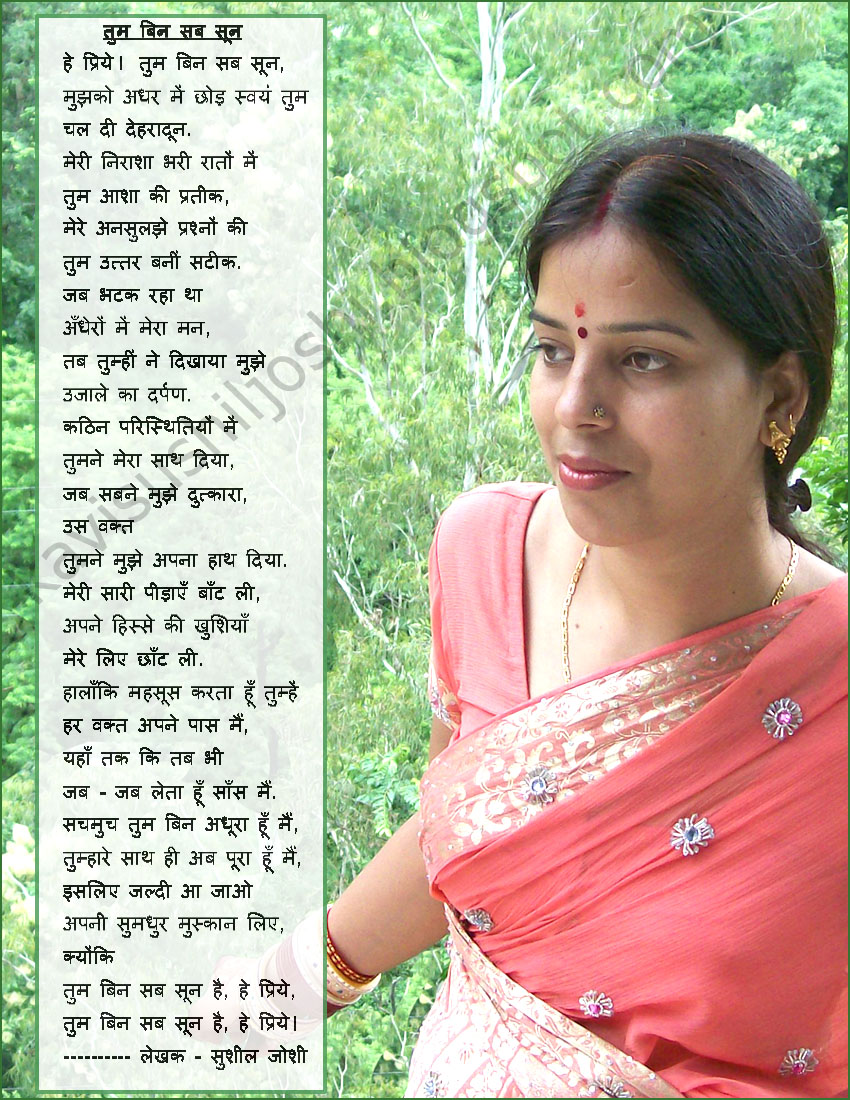 तुम बिन सब सून
हे प्रिये। तुम बिन सब सून,
मुझको अधर में छोड़ स्वयं तुम
चल दी देहरादून.
मेरी निराशा भरी रातों में
तुम आशा की प्रतीक,
मेरे अनसुलझे प्रश्नों की
तुम उत्तर बनीं सटीक.
जब भटक रहा था
अँधेरों में मेरा मन,
तब तुम्हीं ने दिखाया मुझे
उजाले का दर्पण.
कठिन परिस्थितियों में
तुमने मेरा साथ दिया,
जब सबने मुझे दुत्कारा,
उस वक्त
तुमने मुझे अपना हाथ दिया.
मेरी सारी पीड़ाएँ बाँट ली,
अपने हिस्से की खुशियाँ
मेरे लिए छाँट ली.
हालाँकि महसूस करता हूँ तुम्हें
हर वक्त अपने पास मैं,
यहाँ तक कि तब भी
जब - जब लेता हूँ साँस मैं.
सचमुच तुम बिन अधूरा हूँ मैं,
तुम्हारे साथ ही अब पूरा हूँ मैं,
इसलिए जल्दी आ जाओ
अपनी सुमधुर मुस्कान लिए,
क्योंकि
तुम बिन सब सून है, हे प्रिये,
तुम बिन सब सून है, हे प्रिये।
---------- लेखक - सुशील जोशी